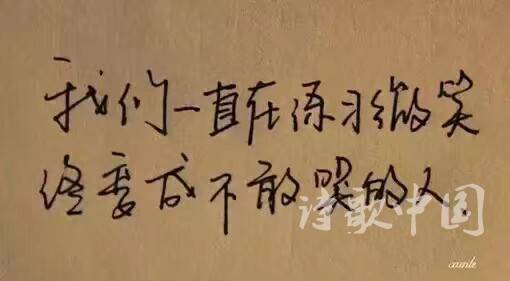 我们一直在练习微笑
终变成不敢哭的人.
诗歌中国